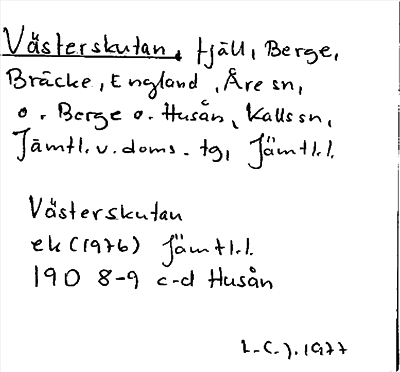 Västerskutan, fjäll, Berge,
Bräcke, England, Åre sn,
o. Berge o. Husån, Kalls sn,
Jämtl. v. doms. tg, Jämtl. l.
Västerskutan
ek (1976) Jämtl. l.
19D 8-9 c-d Husån
L.C.J. 1977